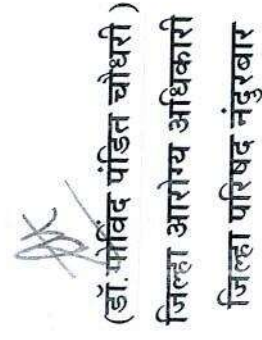 (डॉ.गोविंद पंडित चौधरी)
जिल्हा आरोग्य अधिकारी
जिल्हा परिषद नंदुरबार